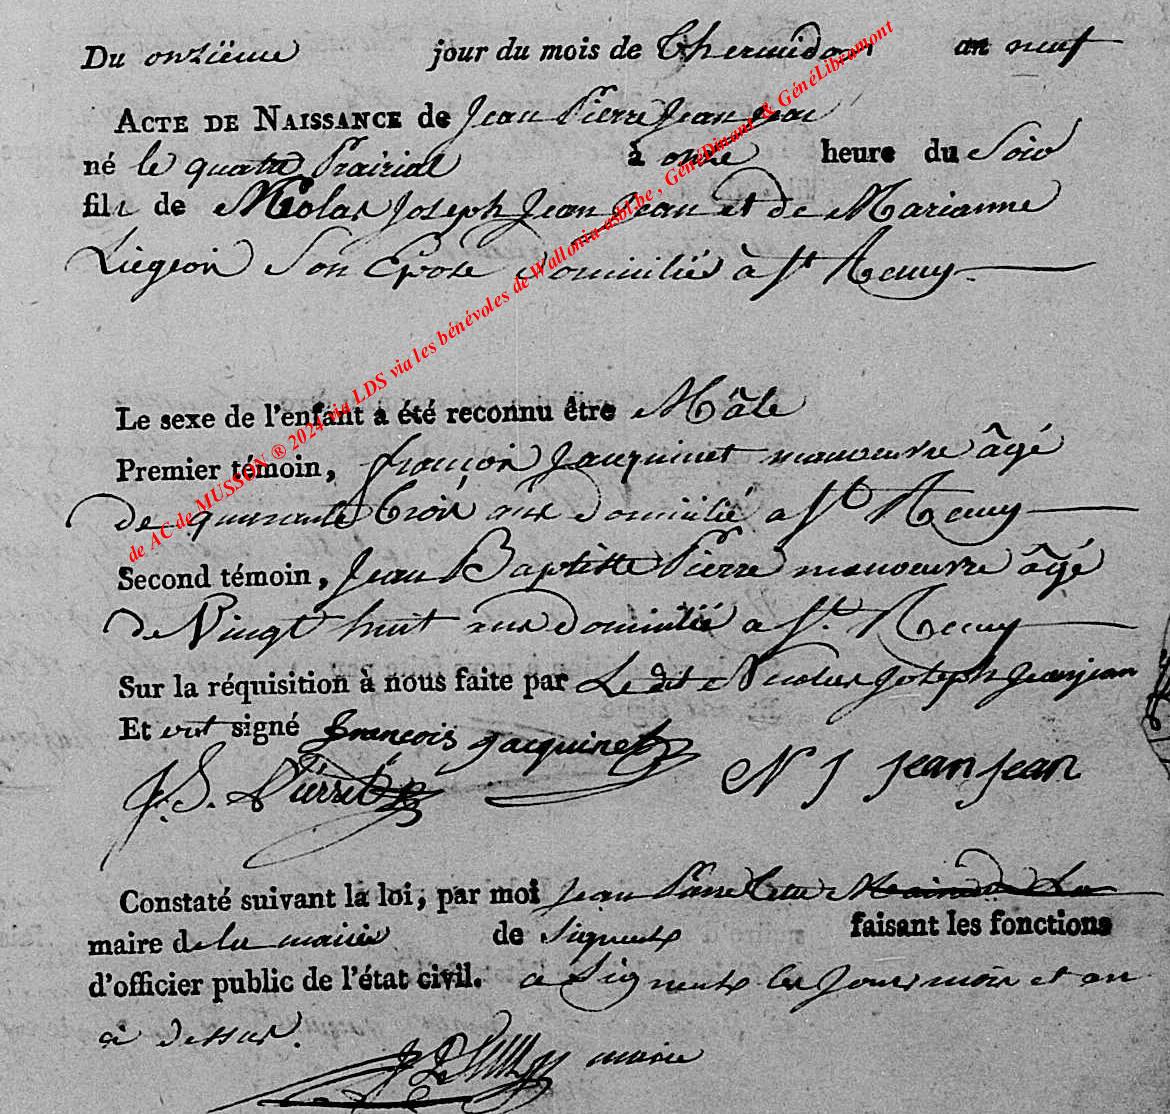 Du onzieme jour du mois de Thermidor an neuf
ACTE DE NAISSANCE de Jean Pierre Jean Jean
né le quatre Prairial à onze heure du Soir
fils de Nicolas Joseph Jean Jean et de Marianne
Liegeois Son Epose domicilié à St Remy
Le sexe de l'enfant a été reconnu être Mâle
Premier témoin, françois Jacquinet manoeuvre âgé
de quarante trois ans domicilié a St Remy
Second témoin, Jean Baptiste Pierre manoeuvre âgé
de Vingt huit ans domicilié a St. Remy
Sur la réquisition à nous faite par Le dit Nicolas Joseph Jeanjean
Et ont signé françois jacquinet
J. B. Pierret N J jean jean
Constaté suivant la loi, par moi Jean Pierre
maire de la mairie de Signeulx faisant les fonctions
d'officier public de l'état civil. a Signeulx les Jour mois et an
à dessus.
maire
de AC de MUSSON ® 2024 via LDS via les bénévoles de Wallonia asbl.be, GénéDinant & GénéLibramont